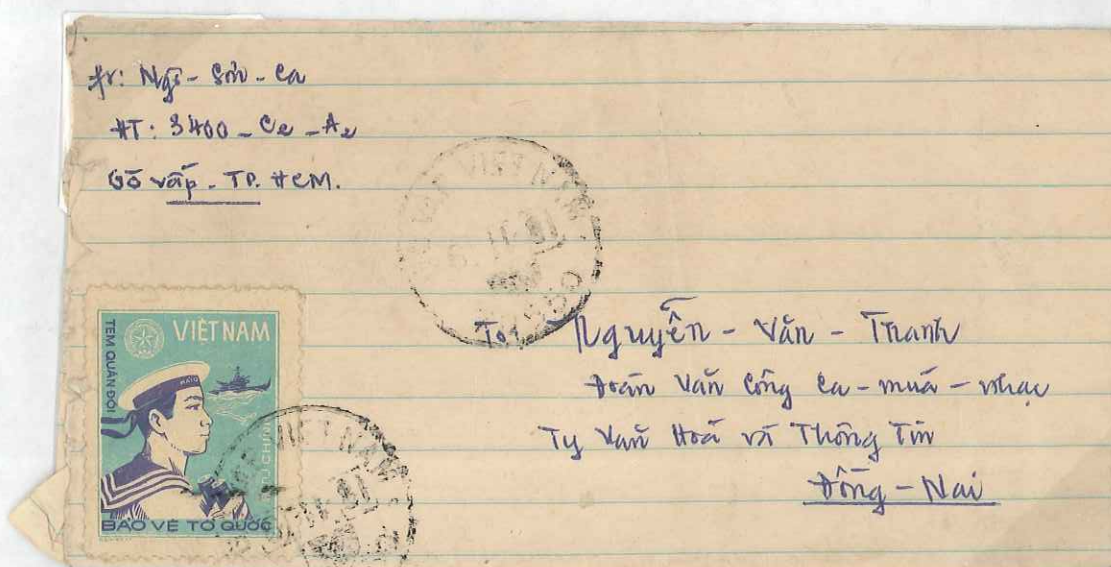 fr: Ngô - Sơn - Ca
HT: 3400 - C2 - A2
Gò vấp - TP. HCM.
VIET NAM
11-81
To: Nguyễn - Văn - Thanh
Đoàn Văn Công Ca - múa - nhạc
Ty Văn Hoá và Thông Tin
Đồng - Nai
TEM QUÂN ĐỘI
VIỆT NAM
HAIQ
BẢO VỆ TỔ QUỐC
VIET NAM
11-81